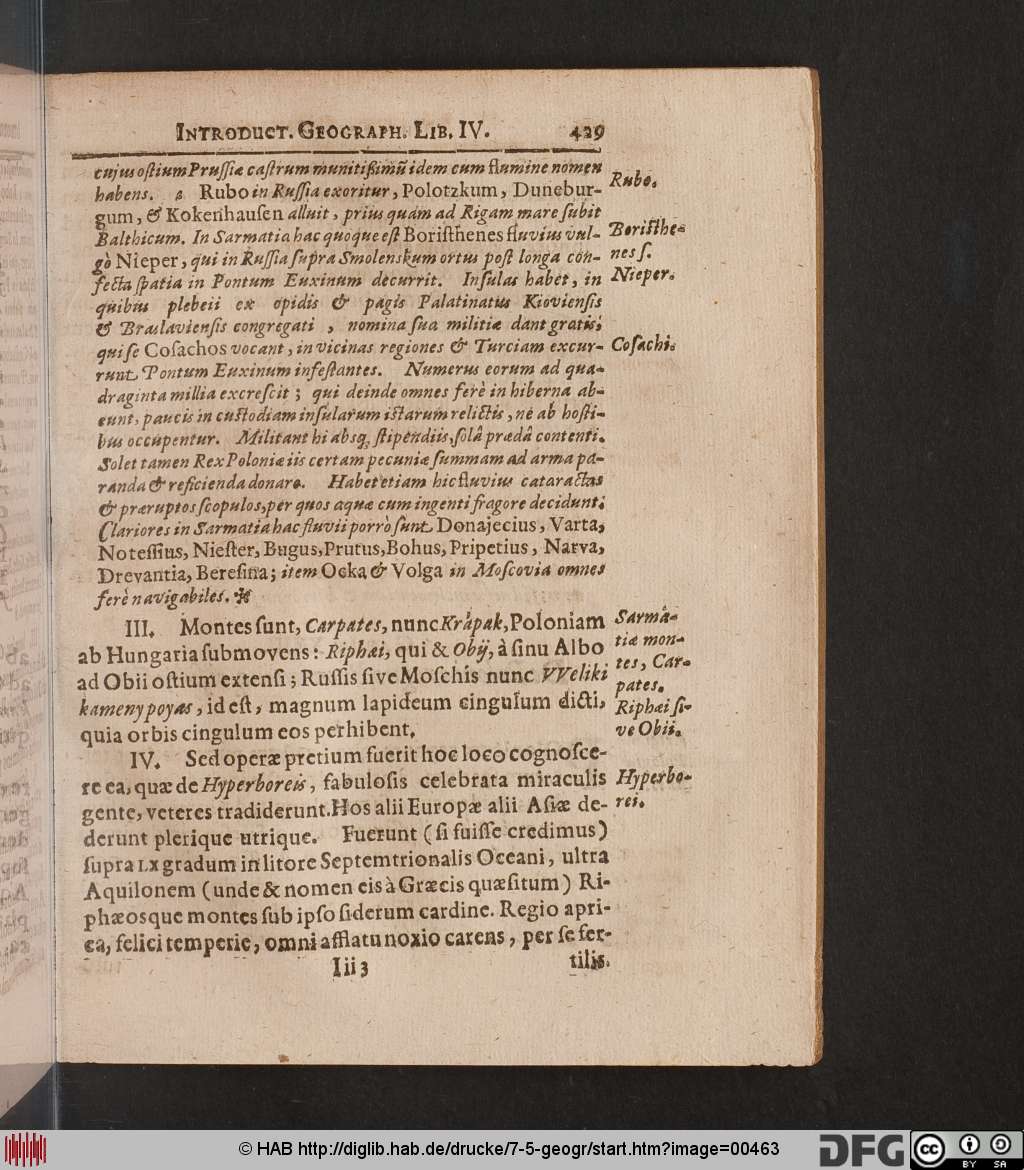 INTRODUCT. GEOGRAPH. LIB. IV. 429
cujus ostium Prussiæ castrum munitißimū idem cum flumine nomen
habens. 2. Rubo in Russia exoritur, Polotzkum, Dunebur-
Rubo.
gum, & Kokenhausen alluit, prius quàm ad Rigam mare subit
Balthicum. In Sarmatia hac quoque est Boristhenes fluvius vul-
Boristhe-
gò Nieper, qui in Russia supra Smolenskum ortus post longa con-
nes s.
fecta spatia in Pontum Euxinum decurrit. Insulas habet, in
Nieper.
quibus plebeii ex opidis & pagis Palatinatus Kioviensis
& Braslaviensis congregati, nomina sua militiæ dant gratis;
qui se Cosachos vocant, in vicinas regiones & Turciam excur-
Cosachi.
runt Pontum Euxinum infestantes. Numerus eorum ad qua-
draginta millia excrescit; qui deinde omnes ferè in hiberna ab-
eunt, paucis in custodiam insularum istarum relictis, ne ab hosti-
bus occupentur. Militant hi absq; stipendiis, solâ prædâ contenti.
Solet tamen Rex Poloniæ iis certam pecuniæ summam ad arma pa-
randa & reficienda donare. Habet etiam hic fluvius cataractas
& præruptos scopulos, per quos aquæ cum ingenti fragore decidunt.
Clariores in Sarmatia hac fluvii porrò sunt Donajecius, Varta,
Notessius, Niester, Bugus, Prutus, Bohus, Pripetius, Narva,
Drevantia, Beresina; item Ocka & Volga in Moscovia omnes
ferè navigabiles.
III. Montes sunt, Carpates, nunc Krápak, Poloniam
Sarma-
ab Hungaria submovens: Riphæi, qui & Obij, à sinu Albo
tiæ mon-
ad Obii ostium extensi; Russis sive Moschis nunc VVeliki
tes, Car-
pates.
kameny poyas, id est, magnum lapideum cingulum dicti,
Riphæi si-
quia orbis cingulum eos perhibent.
ve Obii.
IV. Sed operæ pretium fuerit hoc loco cognosce-
re ea, quæ de Hyperboreis, fabulosis celebrata miraculis
Hyperbo-
gente, veteres tradiderunt. Hos alii Europæ alii Asiæ de-
rei.
derunt plerique utrique. Fuerunt (si fuisse credimus)
supra LX gradum in litore Septemtrionalis Oceani, ultra
Aquilonem (unde & nomen eis à Græcis quæsitum) Ri-
phæosque montes sub ipso siderum cardine. Regio apri-
ca, felici temperie, omni afflatu noxio carens, per se fer-
Iii 3 tilis.
© HAB http://diglib.hab.de/drucke/7-5-geogr/start.htm?image=00463
DFG cc BY SA